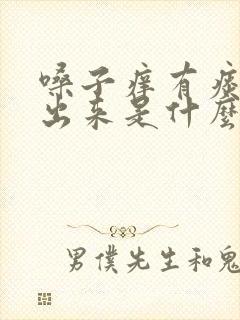 嗓子痒有痰
出来是什麼
男僕先生和鬼